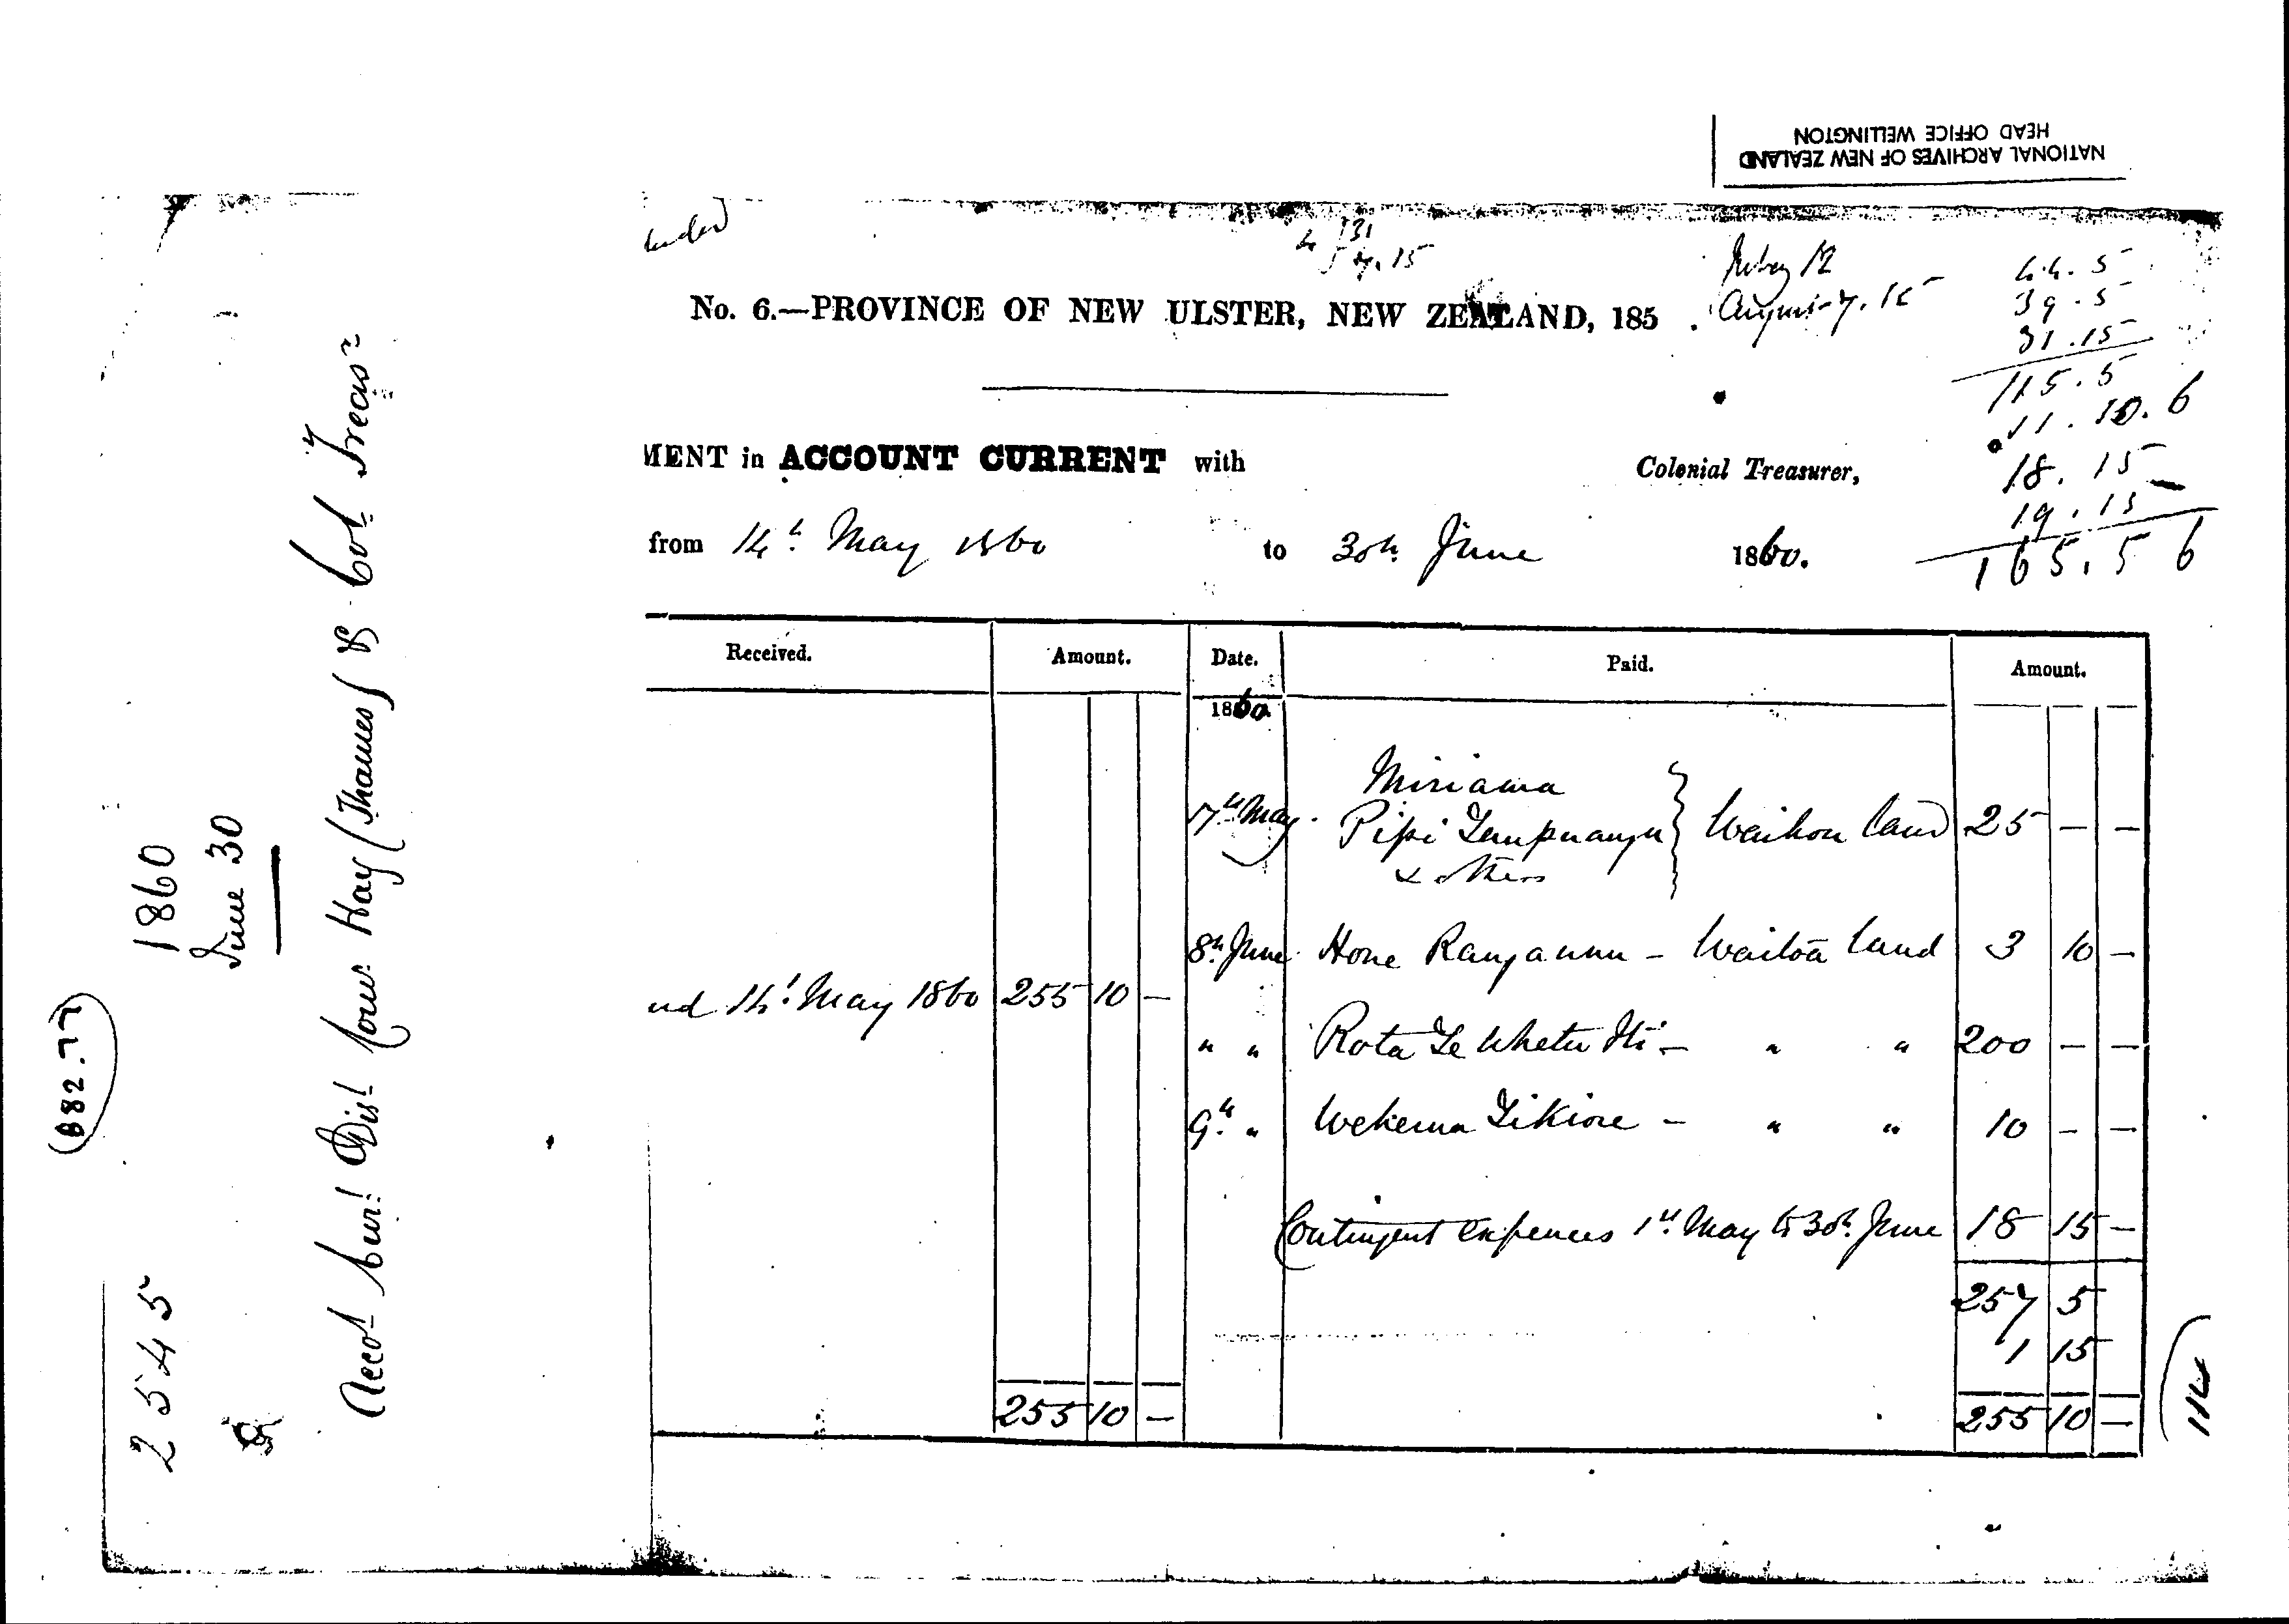 NATIONAL ARCHIVES OF NEW ZEALAND
HEAD OFFICE WELLINGTON
7.15
44.5
39.5
31.15
115.5
11.10.6
18.15
19.15
165.5 6
August 7.15
No. 6.—PROVINCE OF NEW ULSTER, NEW ZEALAND, 185 .
MENT in ACCOUNT CURRENT with Colonial Treasurer,
from 14th May 1860 to 30th June 1860.
Received. Amount. Date. Paid. Amount.
1860.
Miriama
7th May Pipi & others } Waihou land 25 – –
8th June Hone Ranganui – Waitoa land 3 10 –
nd 14th May 1860 255 10 –
" " Rota Te Whetu Iti – " " 200 – –
9th " Wekema Tikiore – " " 10 – –
Contingent expences 1st May to 30th June 18 15 –
257 5
1 15
255 10 – 255 10 –
114
2545
1860
June 30
Accot Curt Dist Comr Hay (Thames) & Col Treasy
(B82.77)